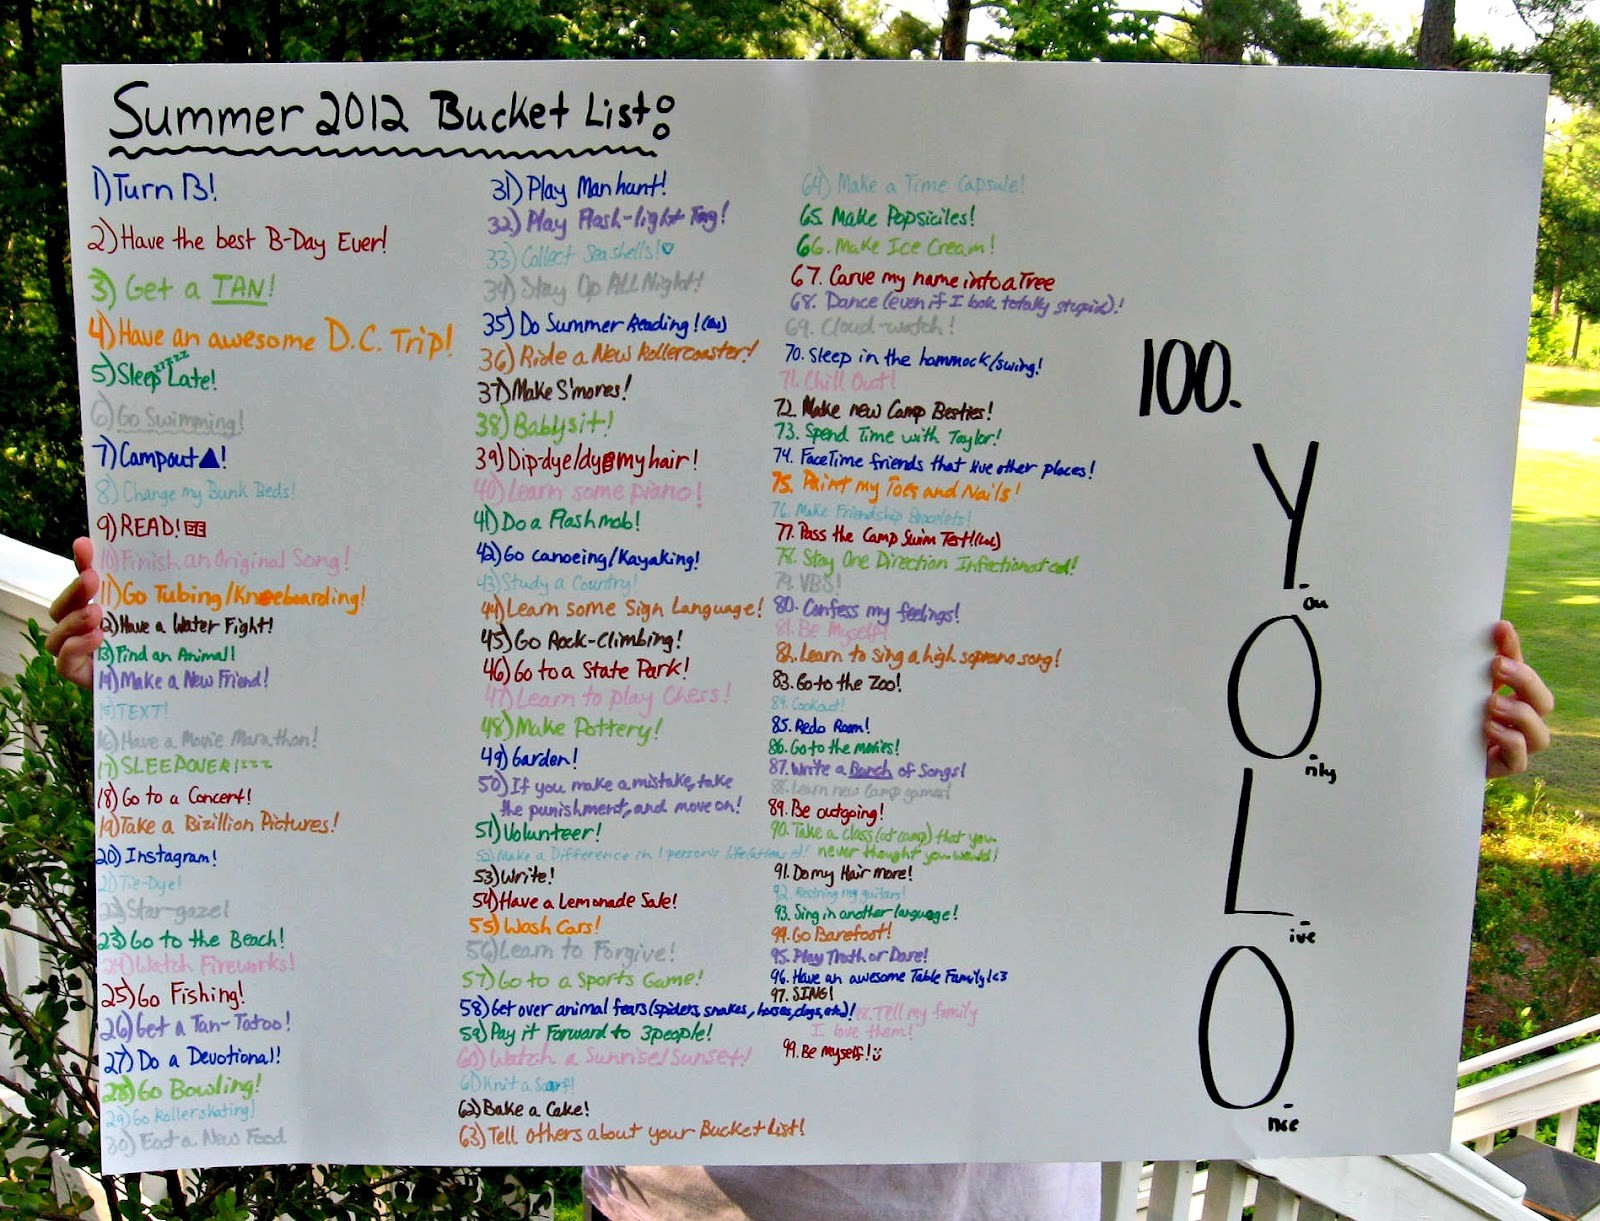 Summer 2012 Bucket List!
1) Turn 13!
2) Have the best B-Day Ever!
3) Get a TAN!
4) Have an awesome D.C. Trip!
5) Sleep zzzzz Late!
6) Go Swimming!
7) Campout!
8) Change my Bunk Beds!
9) READ!
10) Finish an Original Song!
11) Go Tubing/Kneeboarding!
12) Have a Water Fight!
13) Find an Animal!
14) Make a New Friend!
15) TEXT!
16) Have a Movie Marathon!
17) SLEEPOVER!zzzz
18) Go to a Concert!
19) Take a Bizillion Pictures!
20) Instagram!
21) Tie-Dye!
22) Star-gaze!
23) Go to the Beach!
24) Watch Fireworks!
25) Go Fishing!
26) Get a Tan-Tatoo!
27) Do a Devotional!
28) Go Bowling!
29) Go Rollerskating!
30) Eat a New Food
31) Play Manhunt!
32) Play Flash-light Tag!
33) Collect Seashells!♡
34) Stay Up ALL Night!
35) Do Summer Reading!
36) Ride a New Rollercoaster!
37) Make S'mores!
38) Babysit!
39) Dip-dye/dye my hair!
40) Learn some piano!
41) Do a Flashmob!
42) Go Canoeing/Kayaking!
43) Study a Country!
44) Learn some Sign Language!
45) Go Rock-Climbing!
46) Go to a State Park!
47) Learn to play Chess!
48) Make Pottery!
49) Garden!
50) If you make a mistake, take
the punishment, and move on!
51) Volunteer!
52) Make a Difference in 1 person's life
53) Write!
54) Have a Lemonade Sale!
55) Wash Cars!
56) Learn to Forgive!
57) Go to a Sports Game!
58) Get over animal fears (spiders, snakes, horses, dogs, etc.)!
59) Pay it Forward to 3 people!
60) Watch a Sunrise/Sunset!
61) Knit a Scarf!
62) Bake a Cake!
63) Tell others about your Bucket List!
64) Make a Time Capsule!
65. Make Popsiciles!
66. Make Ice Cream!
67. Carve my name into a Tree
68. Dance (even if I look totally stupid)!
69. Cloud-watch!
70. Sleep in the hammock/swing!
71. Chill Out!
72. Make new Camp Besties!
73. Spend Time with Taylor!
74. FaceTime friends that live other places!
75. Paint my Toes and Nails!
76. Make Friendship Bracelets!
77. Pass the Camp Swim Test!
78. Stay One Direction Infectionated!
79. VBS!
80. Confess my feelings!
81. Be Myself!
82. Learn to sing a high soprano song!
83. Go to the Zoo!
84. Cookout!
85. Redo Room!
86. Go to the movies!
87. Write a Bunch of Songs!
88. Learn new Camp games!
89. Be outgoing!
90. Take a class (at camp) that you
never thought you would!
91. Do my Hair more!
92. Restring my guitars!
93. Sing in another language!
94. Go Barefoot!
95. Play Truth or Dare!
96. Have an awesome Table Family! <3
97. SING!
98. Tell my family
I love them!
99. Be Myself!
100.
Y.ou
O.nly
L.ive
O.nce